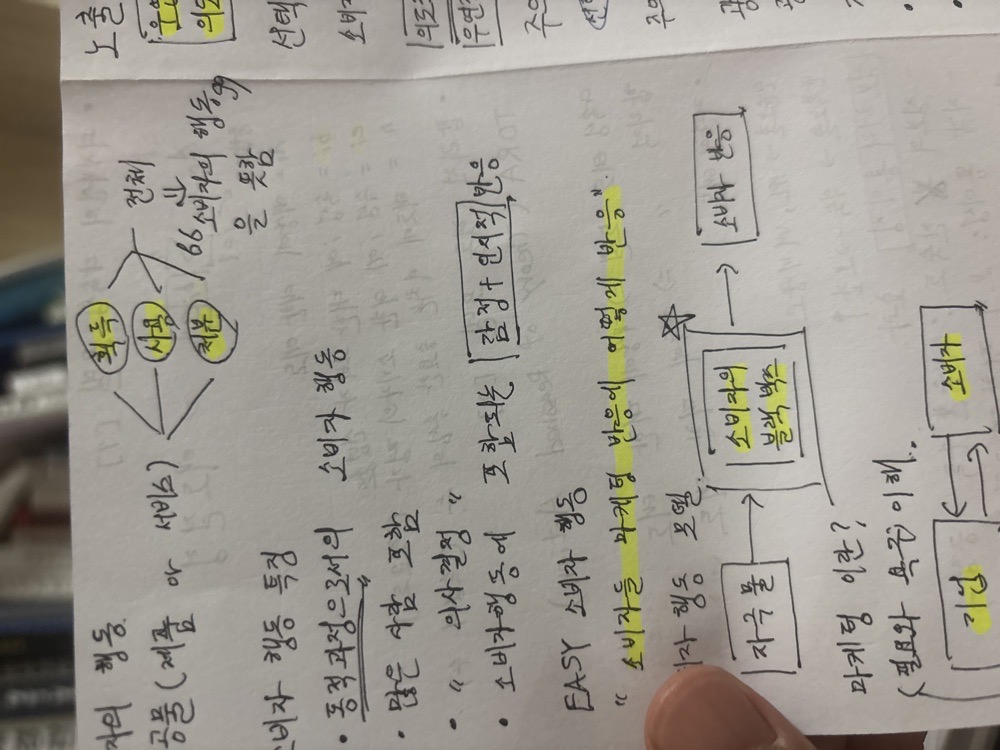 노출
선택
소비
자의 행동
공물(제품 or 서비스)
획득
사용
처분
전체
"소비자의 행동"
을 뜻함
소비자 행동 특징
• 동적 과정으로서의 소비자 행동
• 많은 사람 포함
• " 의사결정 "
• 소비자행동에 포함되는 감정 + 인지적 반응
EASY 소비자 행동
"소비자는 마케팅 반응에 어떻게 반응"
비자 행동 모델.
자극물
소비자의
블랙 박스
소비자 반응
마케팅 이란?
(필요와 욕구 이해.
기업
소비자